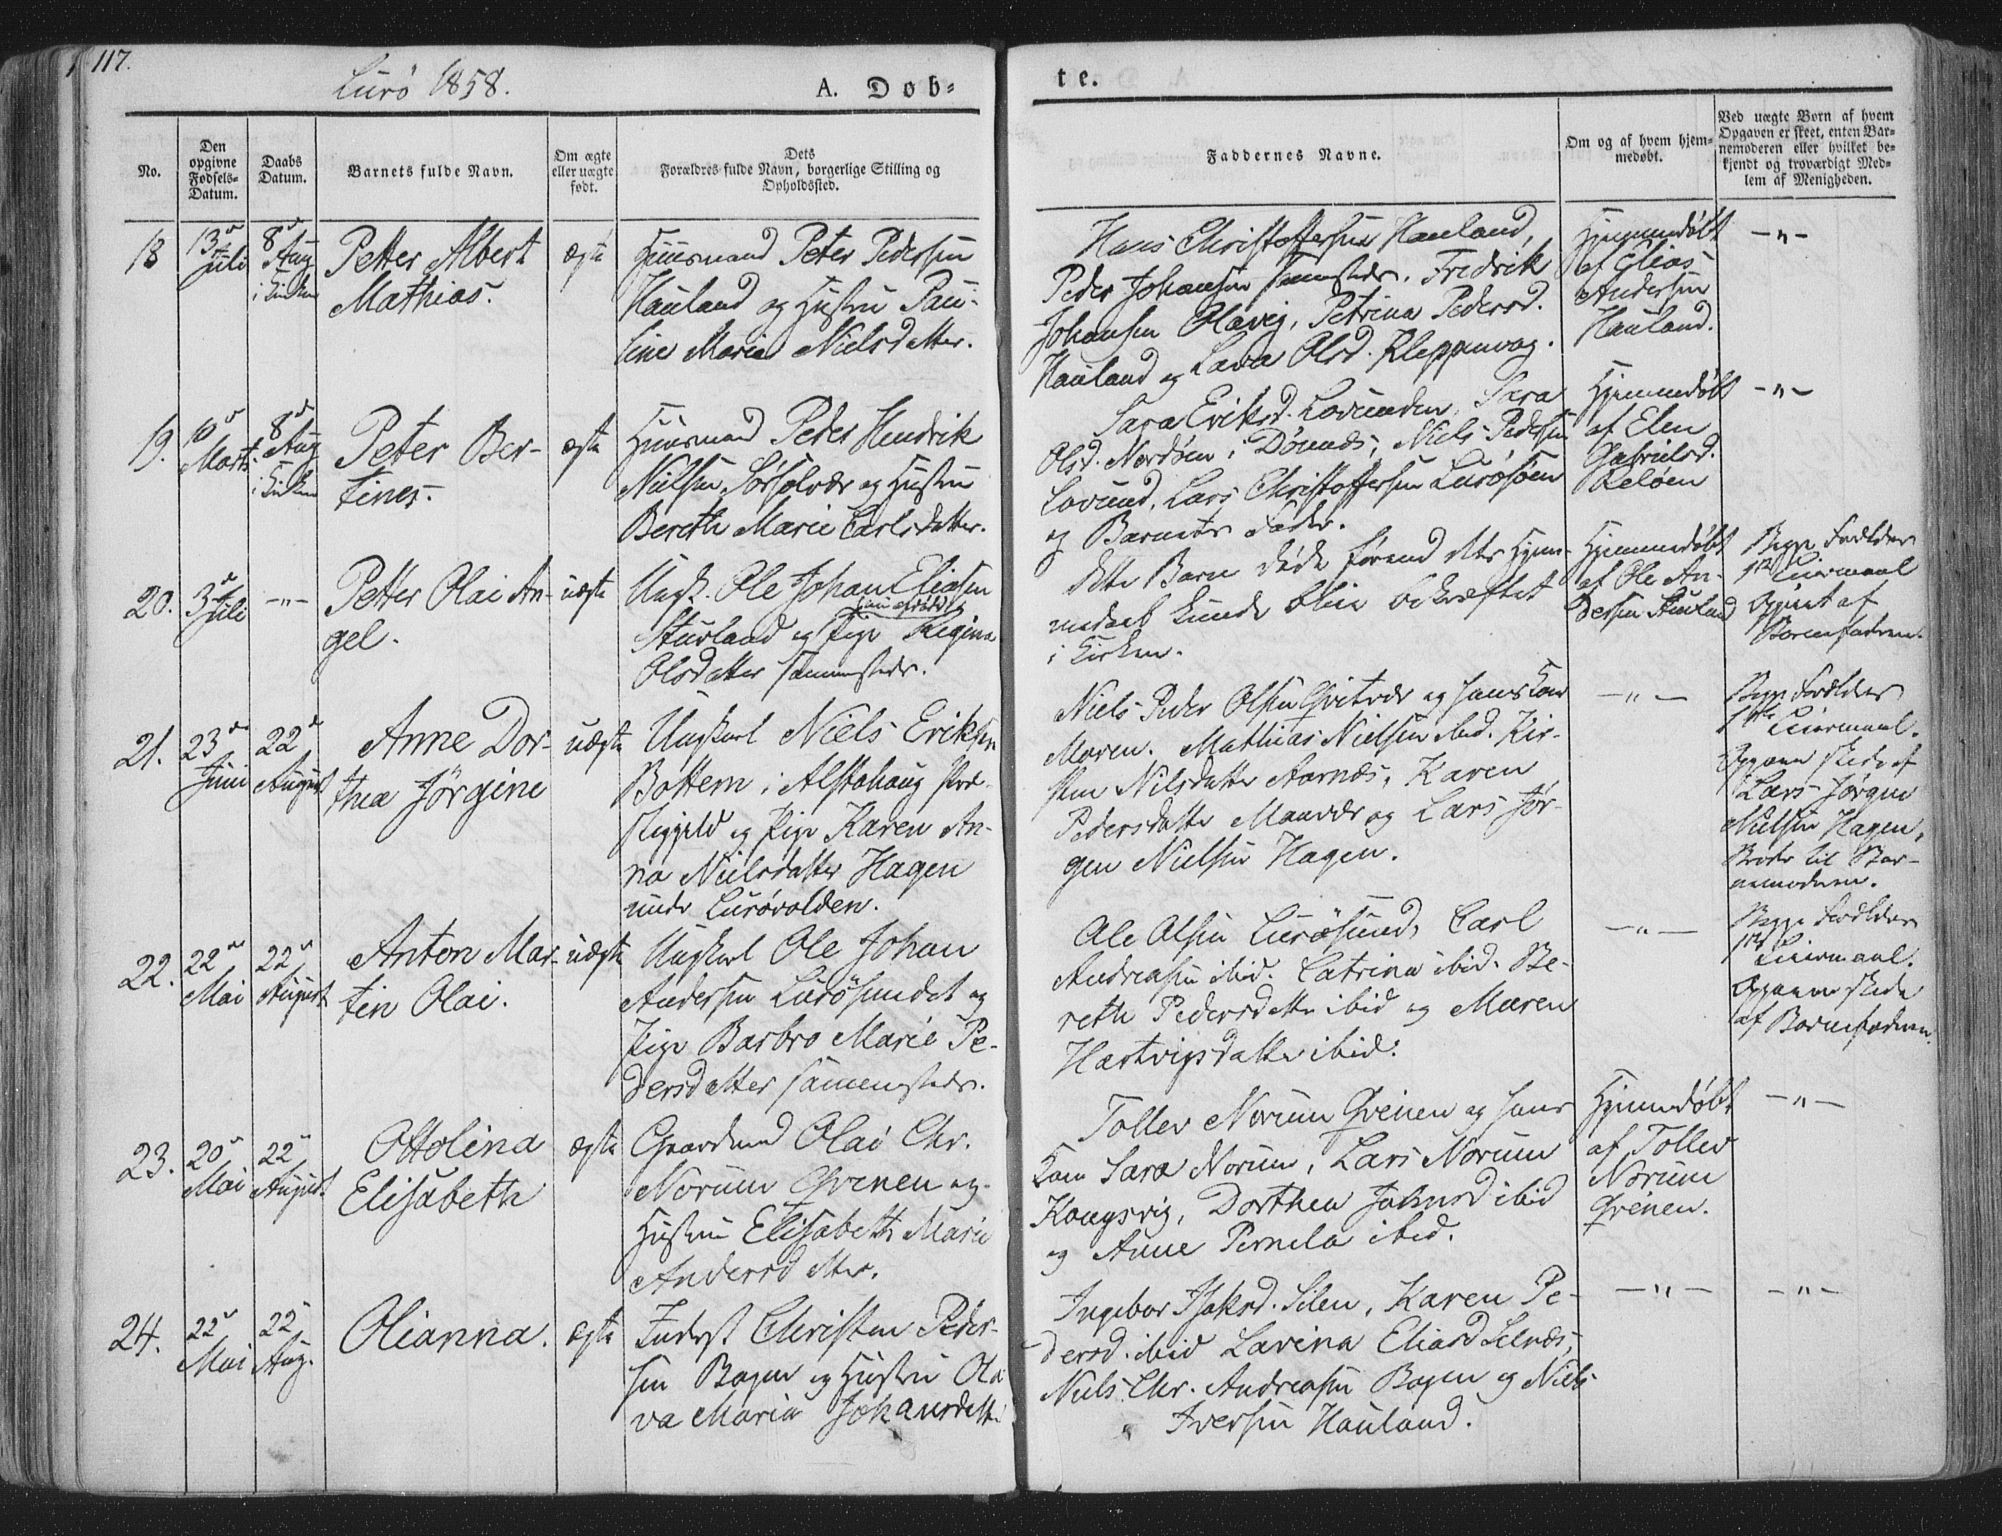 117.
Lurø 1858.
A. Døb-
te.
No.
Den opgivne Fødsels-Datum.
Daabs Datum.
Barnets fulde Navn.
Om ægte eller uægte født.
Dets Forældres fulde Navn, borgerlige Stilling og Opholdssted.
Faddernes Navne.
Om og af hvem hjemmedøbt.
Ved uægte Børn af hvem Opgaven er skeet, enten Barnemoderen eller hvilket bekjendt og troværdigt Medlem af Menigheden.
18
13de Juli
8de Aug i Kirken
Petter Albert
Mathias.
ægte
Huusmand Peter Pedersen
Hauland og Hustru Pau-
line Maria Nielsdatter.
Hans Christoffersen Hauland,
Peder Johansen sammesteds. Fredrik
Johansen Olavig, Petrina Pedersd.
Hauland og Lava Olsd. Kleppevag.
Hjemmedøbt
af Elias
Andersen
Hauland.
-"-
19.
10de Marts.
8de Aug i Kirken
Peter Ber-
tines.
ægte
Huusmand Peder Hendrik
Nielsen Sørsolvær og Hustru
Bereth Marie Carlsdatter.
Sara Eriksd. Lovunden, Sara
Olsd. Nordøen i Dønnæs, Niels Pedersen
Lovund, Lars Christoffersen Lurøsøen
og Barnets Fader.
Hjemmedøbt
af Elen
Gabrielsd.
Seløen
-"-
20.
3de Juli
-"-
Petter Olai An-
gel.
uægte
Ungk. Ole Johan Eliasen
Stuvland og Pige Regina
Olsdatter sammesteds.
Dette Barn døde førend dets Hjem-
medaab kunde blive bekræftet
i Kirken.
Hjemmedøbt
af Ole An-
dersen Stuvland
Begge Forældres
1ste Leiermaal
Opgivet af
Barnefaderen.
21.
23de Juni
22de August
Anne Dor-
thea Jørgine
uægte
Ungkarl Niels Eriksen
Bottem i Alstahaug Præ-
stegjeld og Pige Karen An-
na Nielsdatter Hagen
under Lurøvolden.
Niels Peder Olsen Qvitvær og hans Kone
Maren. Mathias Nielsen ibid. Kir-
sten Nilsdatter Aarnæs, Karen
Pedersdatter Maavær og Lars Jør-
gen Nielsen Hagen.
-"-
Begge Forældres
1ste Leiermaal.
Opgaven skede af
Lars Jørgen
Nielsen Hagen,
Broder til Bar-
nemoderen.
22.
22de Mai
22de August
Anton Mar-
tin Olai.
uægte
Ungkarl Ole Johan
Andersen Lurøsundet og
Pige Barbro Marie Pe-
dersdatter sammesteds.
Ole Olsen Lurøsund, Carl
Andreasen ibid. Catrina ibid. Be-
reth Pedersdatter ibid og Maren
Hartvigsdatter ibid.
-"-
Begge Forældres
1ste Leiermaal.
Opgaven skede
af Barnefaderen.
23.
20de Mai
22de August
Ottolina
Elisabeth
ægte
Gaardmand Olai Chr.
Norum Qvinen og
Hustru Elisabeth Marie
Andersdatter.
Toller Norum Qveinen og hans
Kone Sara Norum, Lars Norum
Kongsvig, Dorthea Johnsd ibid
og Anne Pernela ibid.
Hjemmedøbt
af Toller
Norum
Qveinen.
-"-
24.
22de Mai
22de Aug.
Olianna.
ægte
Inderst Christen Peder-
sen Bogen og Hustru Ola-
va Maria Johansdatter
Ingebor Isaksd. Silen, Karen Pe-
dersd. ibid Lavina Eliasd Selnæs,
Niels Chr. Andreasen Bogen og Niels
Iversen Hauland.
-"-
-"-